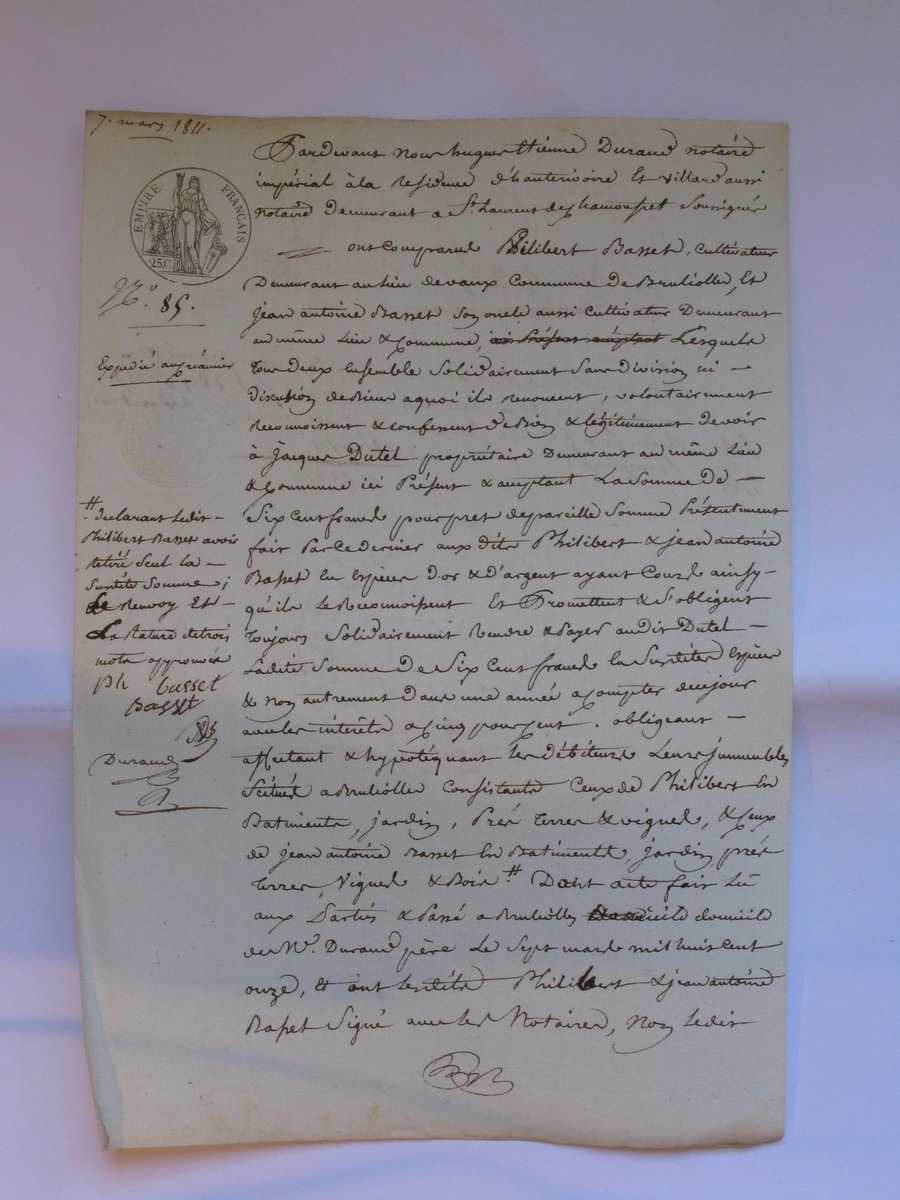 7. mars 1811.
EMPIRE FRANÇAIS
25C
N.° 85.
Expédié au créancier
Pardevant nous hugues Etienne Durand notaire
impérial à la residence d'hauterivoire Et villard aussi
notaire Demeurant a St. Laurent de Chamousset Soussignés
ont comparus Philibert Basset, cultivateur
Demeurant au lieu de vaux Commune De Brulliolles, Et
jean antoine Basset son oncle aussi cultivateur Demeurant
au même Lieu & Commune, Lesquels
tous deux Ensemble Solidairement Sans division ni
discution de biens a quoi ils renoncent, volontairement
reconnoissent & confessent De bien & légitimement devoir
à Jacques Dutel propriétaire Demeurant au même Lieu
& Commune ici Présent & acceptant La Somme De
Six Cent francs pour pret de pareille Somme Présentement
fait Par Ce dernier aux dits Philibert & jean antoine
Basset En Espèces d'or & d'argent ayant Cours ainsy
qu'ils le Reconnoissent Et Promettent & S'obligent
toujours Solidairement Rendre & Payer audit Dutel
Ladite Somme De Six Cent francs En Susdites Espèces
& non autrement Dans une année a compter de ce jour
avec les intérêts a Cinq pour Cent. obligeant
affectant & hypotéquant les débiteurs Leurs immeubles
Scitués a Brulliolles Consistants Ceux de Philibert En
Batiments, jardin, Prés terres & vignes, & Ceux
de jean antoine Basset En Batiments, jardin, prés
terres, Vignes & Bois # Dont acte fait Lu
aux Parties & Passé a Brulliolles domicile
de Mr. Durand père Le Sept mars mil huit cent
onze, Et ont Lesdits Philibert & jean antoine
Basset Signé avec les Notaires, Non Ledit
# declarant Ledit
Philibert Basset avoir
retiré Seul La
Susdite Somme;
Le Renvoy Et
La Rature de trois
mots approuvés
ph basset
Basset
Durand